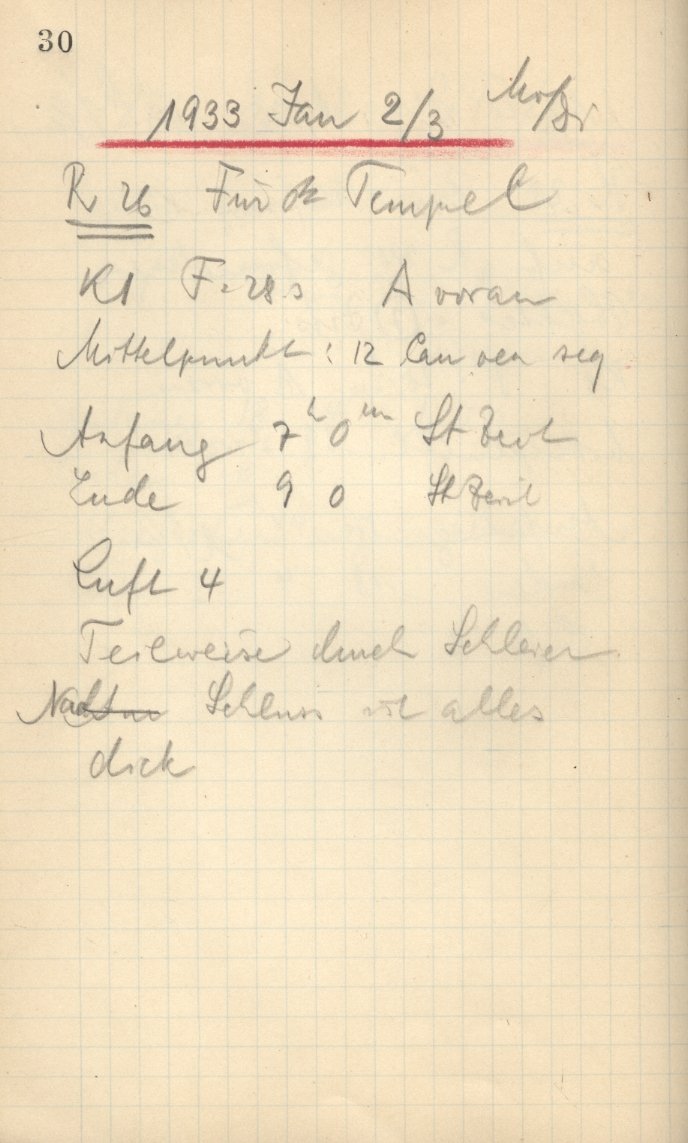 30
1933 Jan 2/3 Mo/Di
R 26 Für Tempel
K1 A voran
Mittelpunkt : 12 Can ven seq
Anfang 7h 0m St Zeit
Ende 9 0 St Zeit
Luft 4
Teilweise durch Schleier
Nach Schluss ist alles
dick